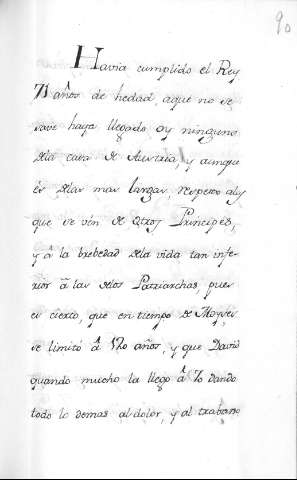 90
Havia cumplido el Rey
71 años de hedad, aque no se
save haya llegado oy ninguno
dela casa de Austria, y aunque
es delas mas largas, respecto alas
que se vén de otros Principes,
y á la brebedad dela vida tan infe-
rior á las delos Patriarchas, pues
es cierto, que en tiempo de Moyses
se limitó á 120 años, y que David
quando mucho la llego á 70 dando
todo lo demas al dolor, y al trabajo